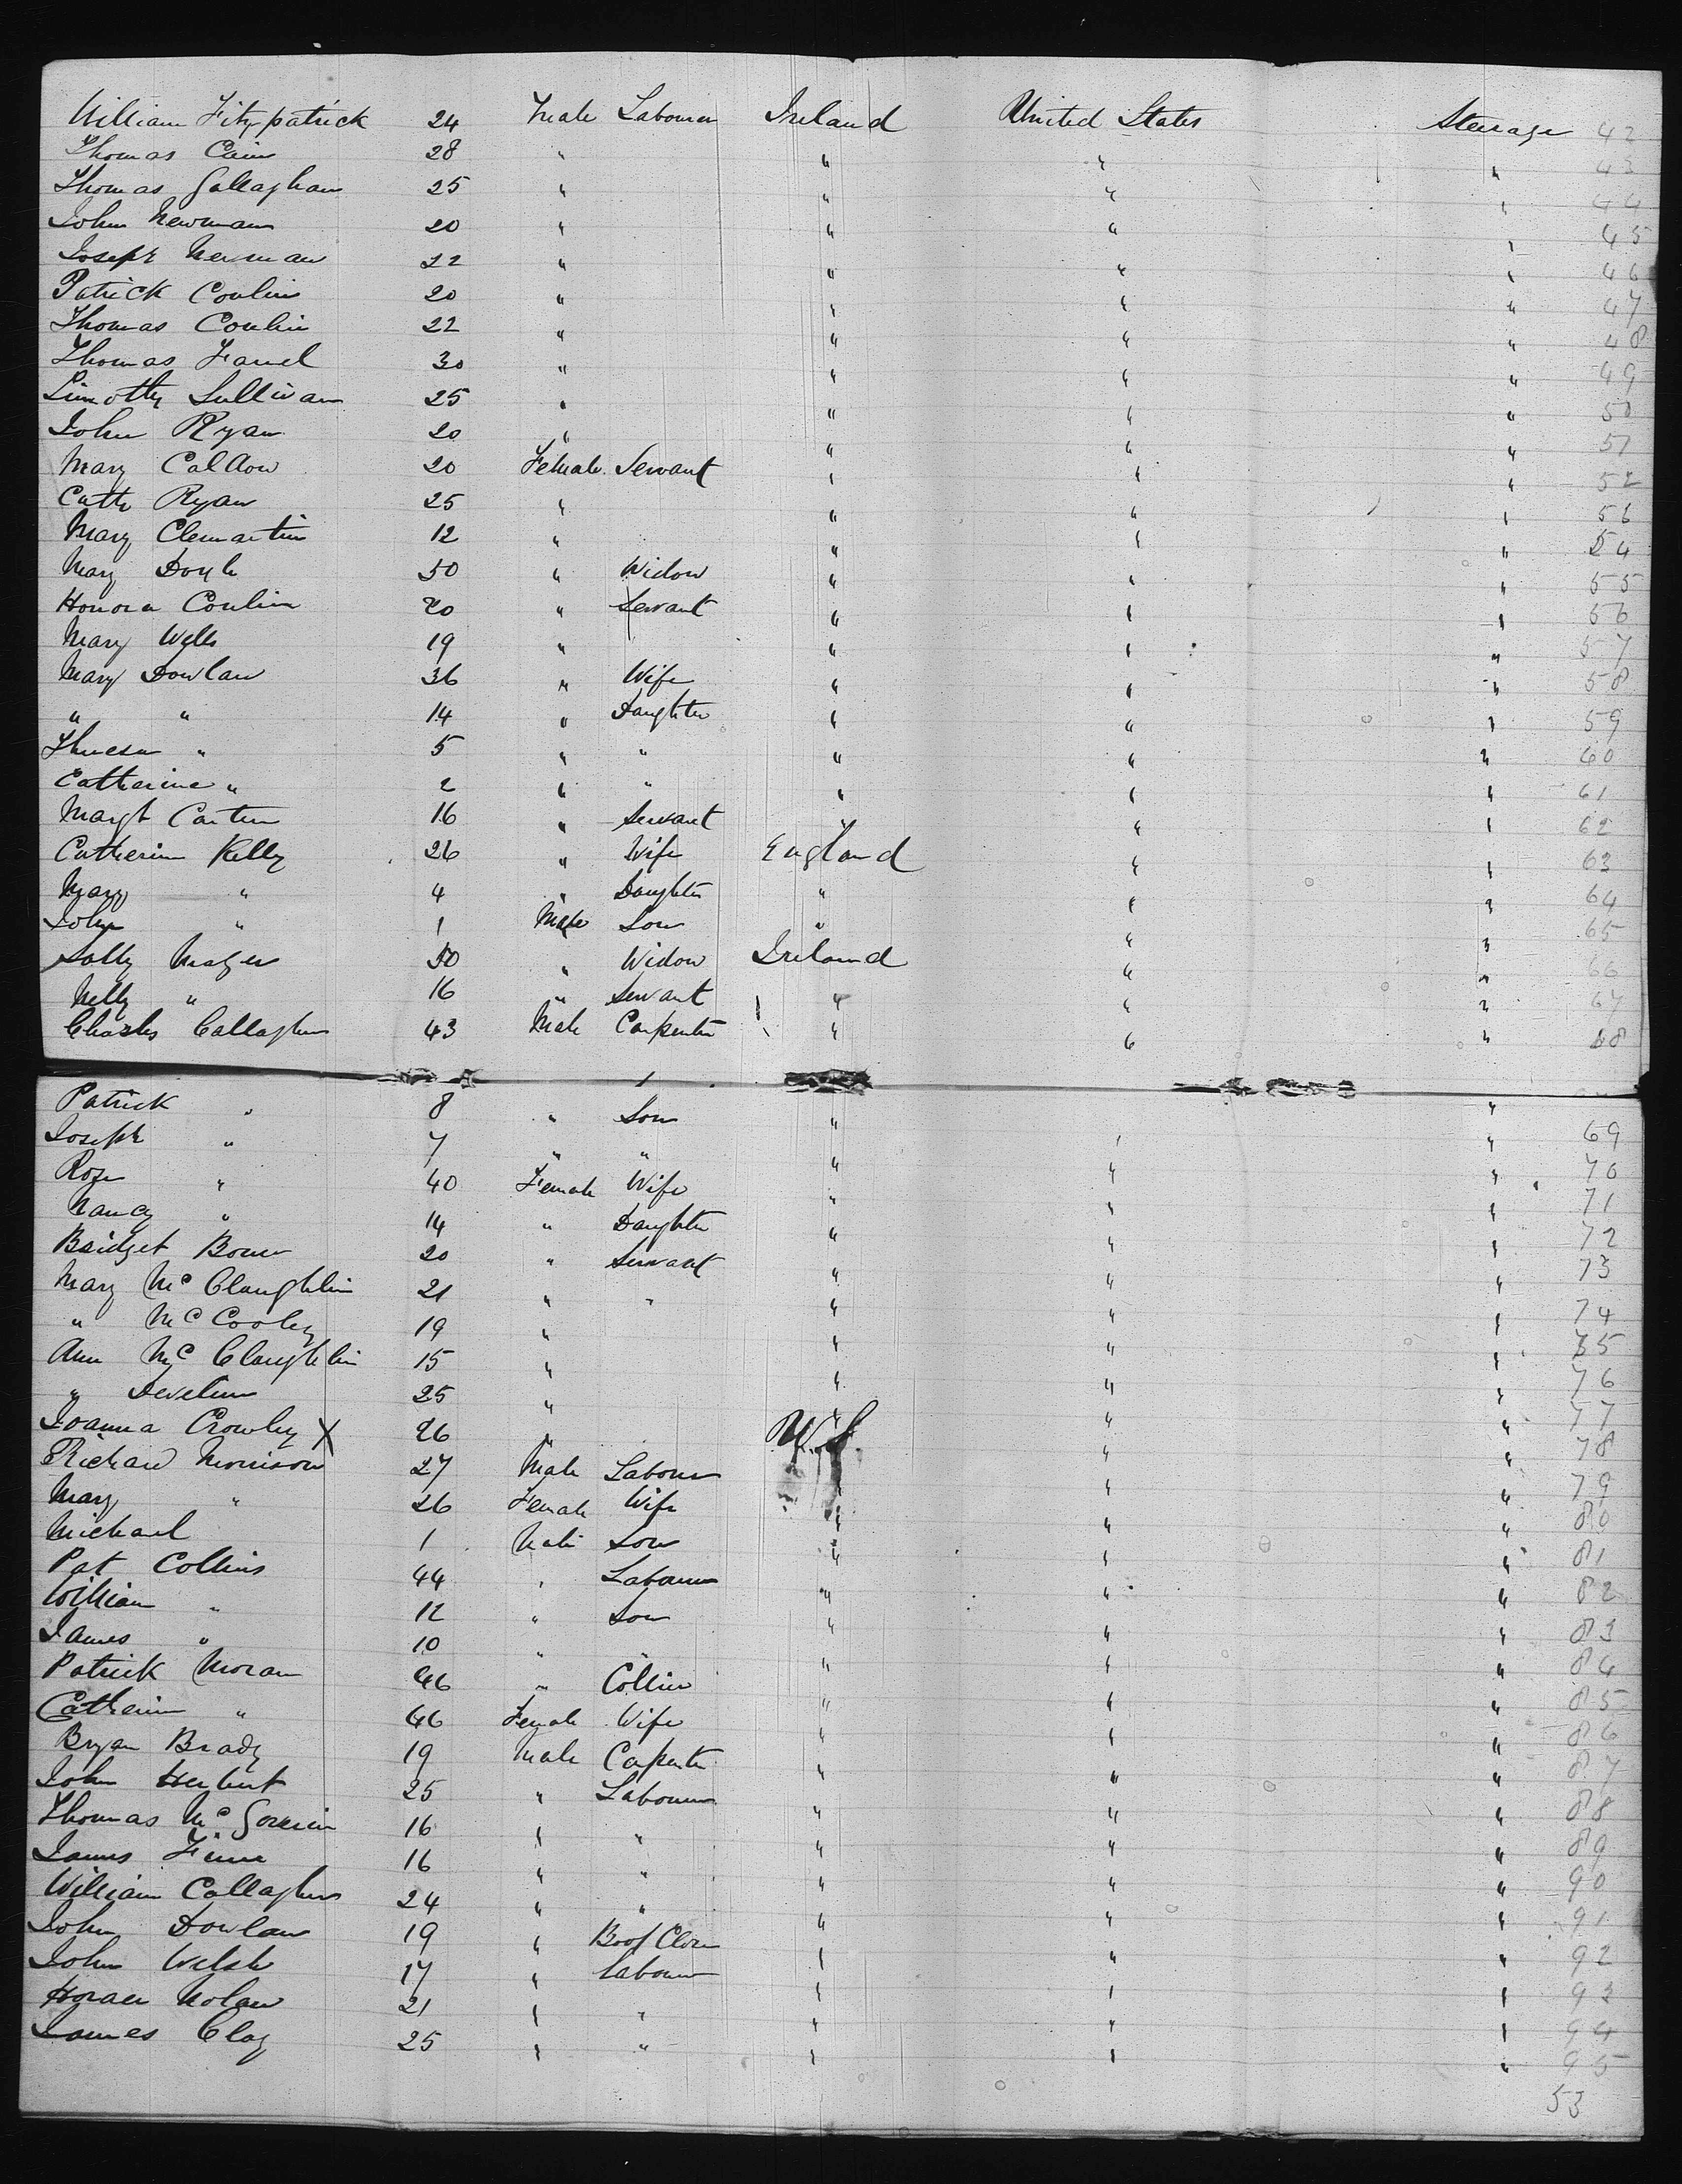 William Fitzpatrick 24 Male Labourer Ireland United States Steerage 42
Thomas Cain 28 " " " " 43
Thomas Gallaghan 25 " " " " 44
John Newman 20 " " " " 45
Joseph Newman 22 " " " " 46
Patrick Conlin 20 " " " " 47
Thomas Conlin 22 " " " " 48
Thomas 30 " " " " 49
Timothy Sullivan 25 " " " " 50
John Ryan 20 " " " " 51
Mary 20 Female Servant " " " 52
Cath Ryan 25 " " " "
Mary Clemartin 12 " " " " 54
Mary Doyle 50 " Widow " " " 55
Honora Conlin 20 " Servant " " " 56
Mary Wells 19 " " " " 57
Mary Dowlan 36 " Wife " " " 58
" " 14 " Daughter " " " 59
" 5 " " " " " 60
Catharine " 2 " " " " " 61
Margt Carten 16 " Servant " " " 62
Catherin Kelly 26 " Wife England " " 63
Mary " 4 " Daughter " " " 64
John " 1 Male Son " " " 65
Sally 50 " Widow Ireland " " 66
Nelly " 16 " Servant " " " 67
Charles Callaghan 43 Male Carpenter " " " 68
Patrick " 8 " Son " "
Joseph " 7 " " " " " 69
Rose " 40 Female Wife " " " 70
Nancy " 14 " Daughter " " " 71
Bridget Boner 20 " Servant " " " 72
Mary McClaughlin 21 " " " " " 73
" McCooley 19 " " " " 74
Ann McClaughlin 15 " " " " 75
" Develin 25 " " " " 76
Joanna Crowley X 26 " U.S. " " 77
Richard Morrison 27 Male Labourer " " 78
Mary " 26 Female Wife " " " 79
Michael 1 Male Son " " " 80
Pat Collins 44 " Labourer " " " 81
William " 12 " Son " " " 82
James " 10 " " " " " 83
Patrick Moran 46 " Collier " " " 84
Catherin " 46 Female Wife " " " 85
Bryan Brady 19 Male Carpenter " " " 86
John Herbert 25 " Labourer " " " 87
Thomas McGoverin 16 " " " " " 88
James Finn 16 " " " " " 89
William Callaghan 24 " " " " " 90
John Dowlan 19 " Boot Closer " " " 91
John Welsh 17 " Labourer " " " 92
Nolan 21 " " " " " 93
James Clay 25 " " " " " 94
95
53